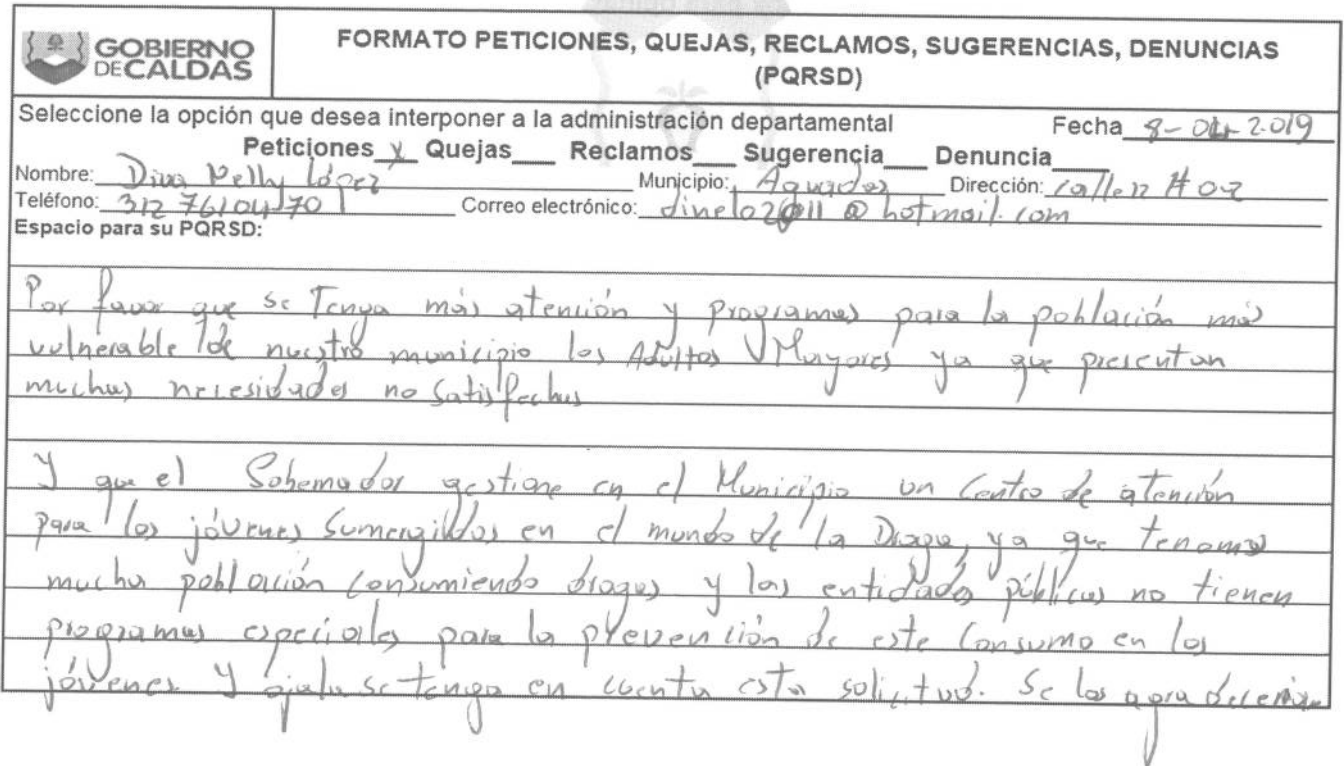 GOBIERNO
DE CALDAS
FORMATO PETICIONES, QUEJAS, RECLAMOS, SUGERENCIAS, DENUNCIAS
(PQRSD)
Seleccione la opción que desea interponer a la administración departamental Fecha 8- 2.019
Peticiones x Quejas___ Reclamos___ Sugerencia___ Denuncia___
Nombre: Diva Nelly López Municipio: Aguadas Dirección:
Teléfono: Correo electrónico: @ hotmail.com
Espacio para su PQRSD:
Por favor que se Tenga más atención y programas para la población más
vulnerable de nuestro municipio los Adultos Mayores ya que presentan
muchas necesidades no satisfechas
Y que el Gobernador gestione en el Municipio un Centro de atención
para los jóvenes sumergidos en el mundo de la Droga, ya que tenemos
mucha población consumiendo drogas y las entidades públicas no tienen
programas especiales para la prevención de este consumo en los
jóvenes. Y ojala se tenga en cuenta esta solicitud. Se los agradecemos